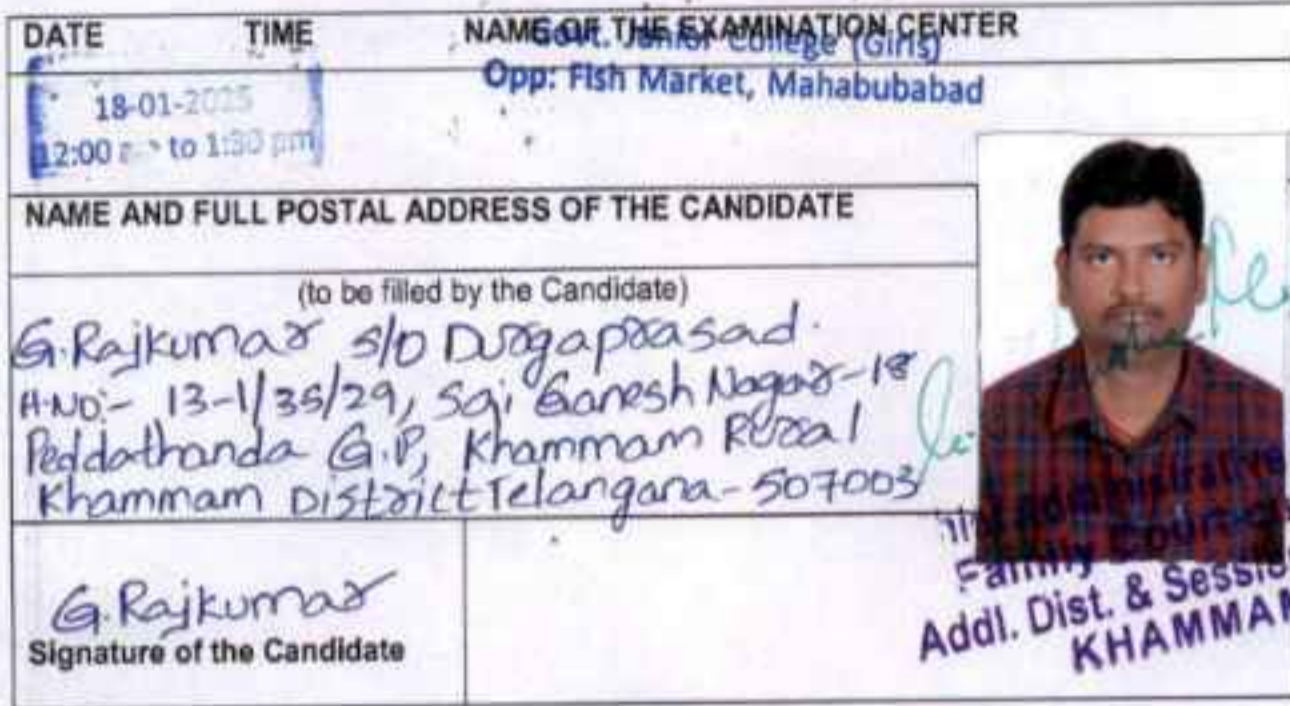 DATE TIME NAME OF THE EXAMINATION CENTER
Govt. Junior College (Girls)
Opp: Fish Market, Mahabubabad
18-01-2025
12:00 to 1:30 pm
NAME AND FULL POSTAL ADDRESS OF THE CANDIDATE
(to be filled by the Candidate)
G.Rajkumar S/O Durgaprasad.
H.NO:- 13-1/35/29, Sai Ganesh Nagar-18
Peddathanda G.P, Khammam Rural
Khammam District Telangana-507003
G.Rajkumar
Signature of the Candidate
Administrative
Family Court
Addl. Dist. & Sessio
KHAMMAM